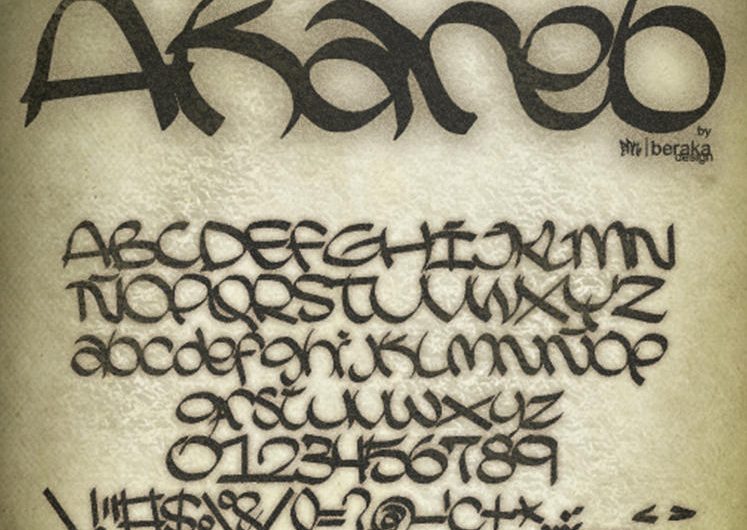 Akareb
by
beraka
design
ABCDEFGHIJKLMN
ÑOPQRSTUVWXYZ
abcdefghijklmnñop
qrstuvwxyz
0123456789